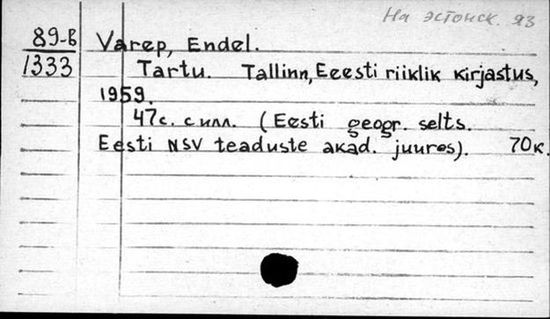 На эстонск. яз
89-В Varep, Endel.
1333 Tartu. Tallinn, Eeesti riiklik kirjastus,
1959.
47с. с илл. (Eesti geogr. selts.
Eesti NSV teaduste akad. juures). 70к.